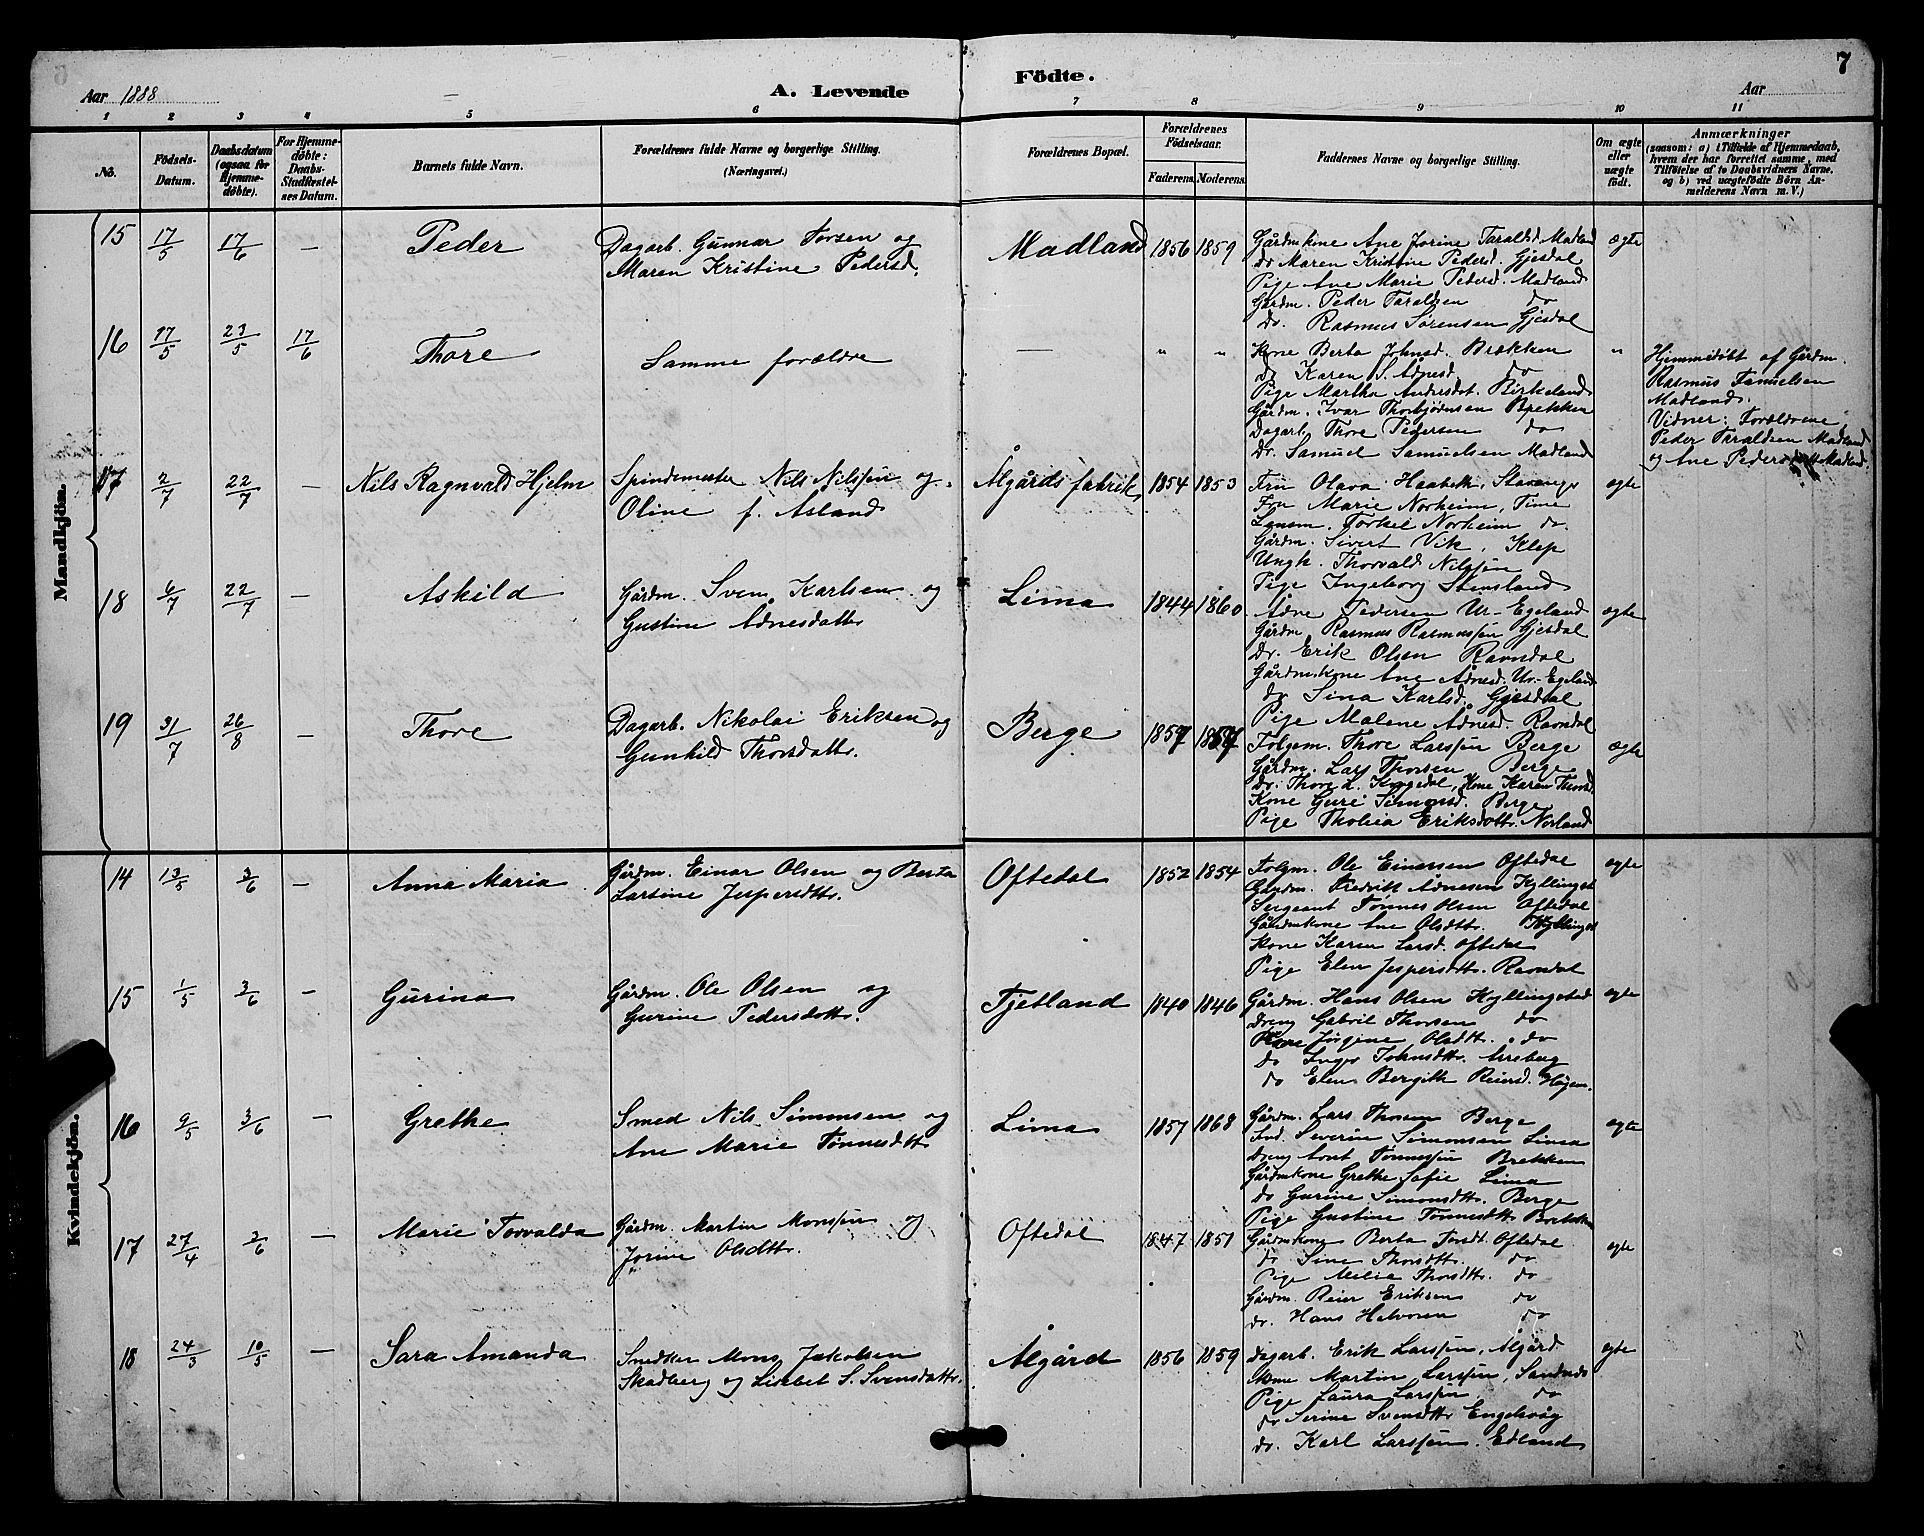 7
Aar 1888
A. Levende
Födte.
Aar
1 2 3 4 5 6 7 8 9 10 11
No.
Födsels-
Datum.
Daabsdatum
(ogsaa for
Hjemme-
döbte).
For Hjemme-
döbte:
Daabs-
Stadfæstel-
ses Datum.
Barnets fulde Navn.
Forældrenes fulde Navne og borgerlige Stilling.
(Næringsvei.)
Forældrenes Bopæl.
Forældrenes
Födselsaar.
Faderens. Moderens.
Faddernes Navne og borgerlige Stilling.
Om ægte
eller
uægte
födt.
Anmærkninger
(saasom: a) i Tilfælde af Hjemmedaab,
hvem der har forrettet samme, med
Tilföielse af to Daabsvidners Navne,
og b) ved uægtefödte Börn An-
melderens Navn m. V.)
Mandkjön.
15 17/5 17/6 — Peder
Dagarb. Gunnar Torsen og
Maren Kristine Pedersd.
Madland 1856 1859
Gårdmkone Ane Jorine Taralsd. Madland
do Maren Kristine Pedersd. Gjesdal
Pige Ane Marie Pedersd. Madland
Gårdm. Peder Taraldsen do
Do. Rasmus Sörensen Gjesdal
ægte
16 17/5 23/5 17/6 Thore
Samme forældre
— " "
Kone Berta Johnsd. Brækken
do Karen S. Ådnesd. do
Pige Martha Andersdat. Birkeland
Gårdm. Ivar Thorbjörnsen Brekken
Dagarb. Thore Pedersen do
Do. Samuel Samuelsen Madland
"
Hjemmedöbt af Gårdm.
Rasmus Samuelsen
Madland.
Vidner: Forældrene,
Peder Taraldsen Madland
og Ane Pedersdatt. Madland.
17 2/7 22/7 — Nils Ragnvald Hjelm
Spindemester Nils Nilssen og
Oline f. Asland
Ålgårds fabrik 1854 1853
Fru Olava Haabeth, Stavanger
Fru Marie Norheim, Time
Lensm. Torkel Norheim do.
Gårdm. Sivert Vik, Klep
Ungk. Thorvald Nilssen
Pige Ingeborg Stensland
ægte
18 6/7 22/7 — Askild
Gårdm. Sven Karlsen og
Gustine Ådnesdatter
Lima 1844 1860
Ådne Pedersen Ur-Egeland
Gårdm. Rasmus Rasmussen Gjesdal
Do. Erik Olsen Ravndal
Gårdmkone Ane Ådnesd. Ur-Egeland
do Sina Karlsd. Gjesdal
Pige Malene Ådnesd. Ravndal
ægte
19 31/7 26/8 — Thore
Dagarb. Nikolai Eriksen og
Gunhild Thorsdattr.
Berge 1857 1857
Folgem. Thore Larssen Berge
Gårdm. Lars Thorsen Berge
Do. Thore L. Kyllingsdal, Kone Karen Thorsd.
Kone Guri Simonsd. Berge
Pige Tholia Eriksdattr. Norland
ægte
Kvindekjön.
14 13/5 3/6 — Anna Maria
Gårdm. Einar Olsen og Berta
Lartine Jespersdttr.
Oftedal 1852 1854
Folgm. Ole Einarsen Oftedal
Gårdm. Fredrik Ådnesen Kyllingst
Sergeant Tönnes Olsen Oftedal
Gårdmkone Ane Olsdttr. Kyllingst
Kone Karen Larsd. Oftedal
Pige Elen Jespersdttr. Ravndal
ægte
15 1/5 3/6 — Gurina
Gårdm. Ole Olsen og
Gurine Pedersdattr.
Tjetland 1840 1846
Gårdm. Hans Olsen Kyllingstad
Dreng Gabriel Thorsen do
Kone Jörgine Olsdttr. do
do Inger Johnsdttr. Arreberg
do Elen Bergith Reiersd. Högem.
ægte
16 9/5 3/6 — Grethe
Smed Nils Simonsen og
Ane Marie Tönnesdttr
Lima 1857 1868
Gårdm. Lars Thorsen Berge
Ind. Severin Simonsen Lima
Dreng Arnt Tönnessen Brekken
Gårdmkone Grethe Sofie Lima
do Gurine Simonsdttr. Berge
Pige Gustine Tönnesdttr Brekken
ægte
17 27/4 3/6 — Marie Torvalda
Gårdm. Martin Monssen og
Jorine Olsdttr.
Oftedal 1847 1851
Gårdmkone Berta Torsdt. Oftedal
do Sine Thorsdttr. do
Pige Milie Thorsdttr. do
Gårdm. Reier Eriksen do
do. Hans Halvorsen do
ægte
18 24/3 10/5 — Sara Amanda
Snedker Mons Jakobsen
Skadberg og Lisabet S. Svensdattr.
Ålgård 1856 1859
Dagarb. Erik Larssen, Ålgård
Kone Martin Larssen, Sandnes
Pige Laura Larssen, do
do Serine Svensdttr Engelsvåg
do. Karl Larssen. Edland
ægte